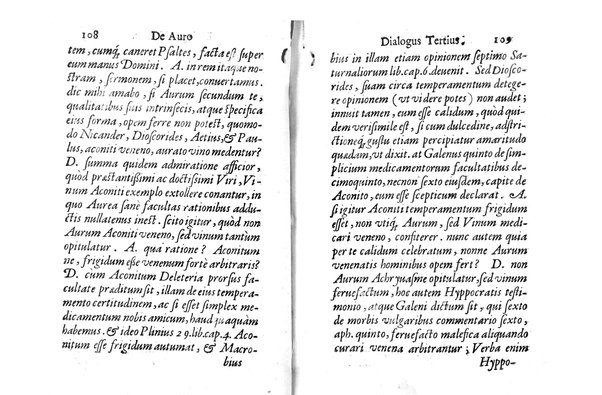 108 De Auro
tem, cumq́; caneret Psaltes, facta est super
eum manus Domini. A. in rem itaque no-
stram, sermonem, si placet, convertamus.
dic mihi amabo, si Aurum secundum te,
qualitatibus suis intrinsecis, atque specifica
eius forma, opem ferre non potest, quomo-
do Nicander, Dioscorides, Aetius, & Pau-
lus, aconiti veneno, aurato vino medentur?
D. summa quidem admiratione afficior,
quòd præstantißimi ac doctißimi Viri, Vi-
num Aconiti exemplo extollere conantur, in
quo Aurea sanè facultas rationibus addu-
ctis nullatenus inest. scito igitur, quòd non
Aurum Aconiti veneno, sed vinum tantùm
opitulatur. A. qua ratione? Aconitum
ne, frigidum eße venenum fortè arbitraris?
D. cum Aconitum Deleteria prorsus fa-
cultate præditum sit, illam de eius tempera-
mento certitudinem, ac si esset simplex me-
dicamentum nobis amicum, haud quaquàm
habemus. & ideo Plinius 29. lib. cap. 4. Aco-
nitum esse frigidum autumat, & Macro-
bius
Dialogus Tertius. 109
bius in illam etiam opinionem septimo Sa-
turnaliorum lib. cap. 6. devenit. Sed Diosco-
rides, suam circa temperamentum detege-
re opinionem (vt videre potes) non audet;
innuit tamen, eum esse calidum, quòd qui-
dem verisimile est, si cum dulcedine, adstri-
ctioneq́; gustu etiam percipiatur amaritudo
quædam, vt dixit. at Galenus quinto de sim-
plicium medicamentorum facultatibus de-
cimoquinto, necnon sexto eiusdem, capite de
Aconito, eum esse scepticum declarat. A.
si igitur Aconiti temperamentum frigidum
esset, non vtiq́; Aurum, sed Vinum medi-
cari veneno, confiterer. nunc autem quia
per te calidum celebratur, nonne Aurum
venenatis hominibus opem fert? D. non
Aurum Achryuasme opitulatur, sed vinum
feruefactum, hoc autem Hyppocratis testi-
monio, atque Galeni dictum sit, qui sexto
de morbis vulgaribus commentario sexto,
aph. quinto, feruefacto malefica aliquando
curari venena arbitrantur; Verba enim
Hyppo-